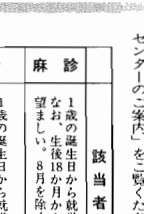 センターのご案内」をご覧くだ
該当者
1歳の誕生日から就
なお、生後18か月か
望ましい。 8月を除
診
麻
1歳の誕生日から就